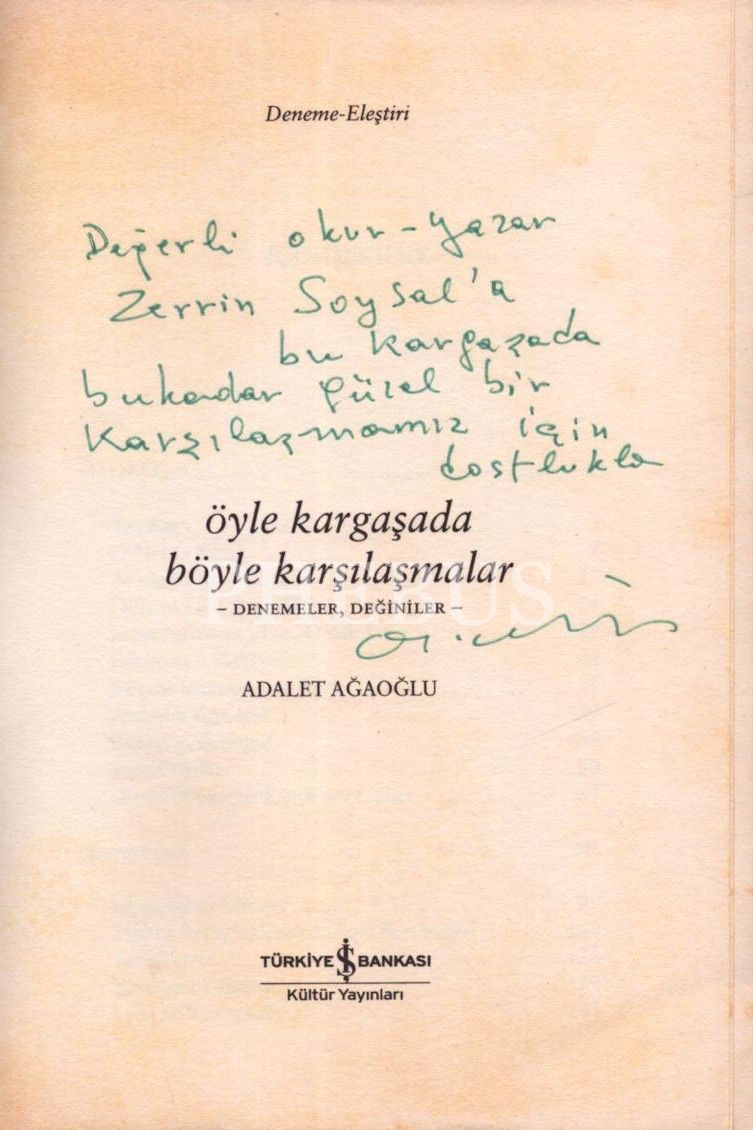 Deneme-Eleştiri
Değerli okur-yazar
Zerrin Soysal'a
bu kargaşada
bukadar güzel bir
karşılaşmamız için
dostlukla
öyle kargaşada
böyle karşılaşmalar
PHEBUS
– DENEMELER, DEĞİNİLER –
ADALET AĞAOĞLU
TÜRKİYE İŞ BANKASI
Kültür Yayınları